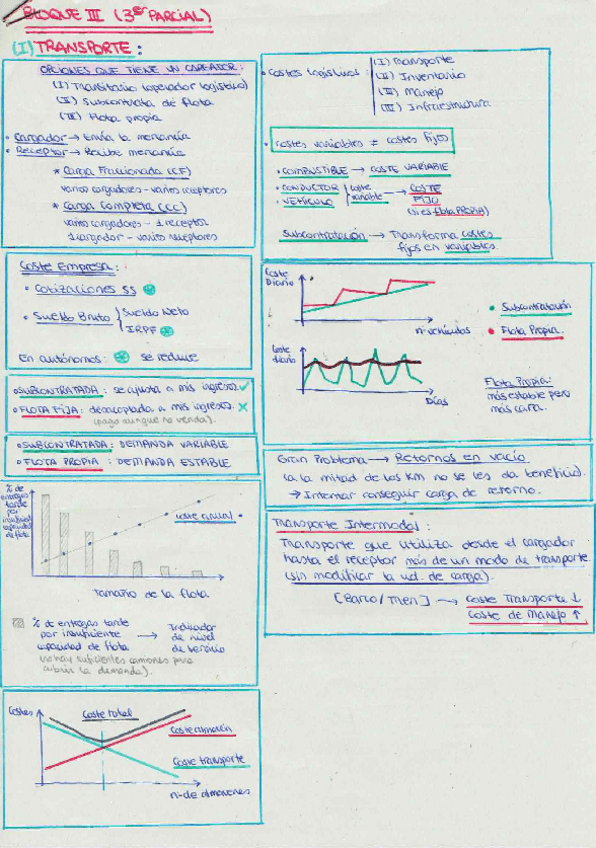 BLOQUE III (3er PARCIAL)
(I) TRANSPORTE:
OPCIONES QUE TIENE UN CARGADOR:
(I) Transitario (operador logístico)
(II) Subcontrata de flota
(III) Flota propia
• Cargador → Envía la mercancía
• Receptor → Recibe mercancía
* Carga Fraccionada (CF)
varios cargadores - varios receptores
* Carga Completa (CC)
varios cargadores - 1 receptor
1 cargador - varios receptores
Coste Empresa:
• Cotizaciones SS
• Sueldo Bruto
Sueldo Neto
IRPF
En autónomos: se reduce
• SUBCONTRATADA: se ajusta a mis ingresos ✓
• FLOTA FIJA: desacoplada a mis ingresos. ✗
(pago aunque no venda).
• SUBCONTRATADA: DEMANDA VARIABLE
• FLOTA PROPIA: DEMANDA ESTABLE
% de entregas tarde por insuficiente capacidad de flota
coste anual
Tamaño de la flota
% de entregas tarde
por insuficiente
capacidad de flota
→ Indicador
de nivel
de servicio
(no hay suficientes camiones para
cubrir la demanda).
Costes
Coste total
Coste almacén
Coste transporte
nº de almacenes
• Costes logísticos:
(I) Transporte
(II) Inventario
(III) Manejo
(III) Infraestructura
• Costes variables ≠ costes fijos
• COMBUSTIBLE → COSTE VARIABLE
• CONDUCTOR
• VEHÍCULO
coste
variable
→ COSTE
FIJO
(si es flota PROPIA)
Subcontratación → Transforma costes
fijos en variables.
Coste
Diario
nº vehículos
• Subcontratación
• Flota Propia.
Coste
diario
Días
Flota Propia:
más estable pero
más cara.
Gran Problema → Retornos en vacío
(a la mitad de los km no se les da beneficio).
→ Intentar conseguir carga de retorno.
Transporte Intermodal:
Transporte que utiliza desde el cargador
hasta el receptor más de un modo de transporte
(sin modificar la ud. de carga).
[Barco/Tren] → Coste Transporte ↓
Coste de Manejo ↑